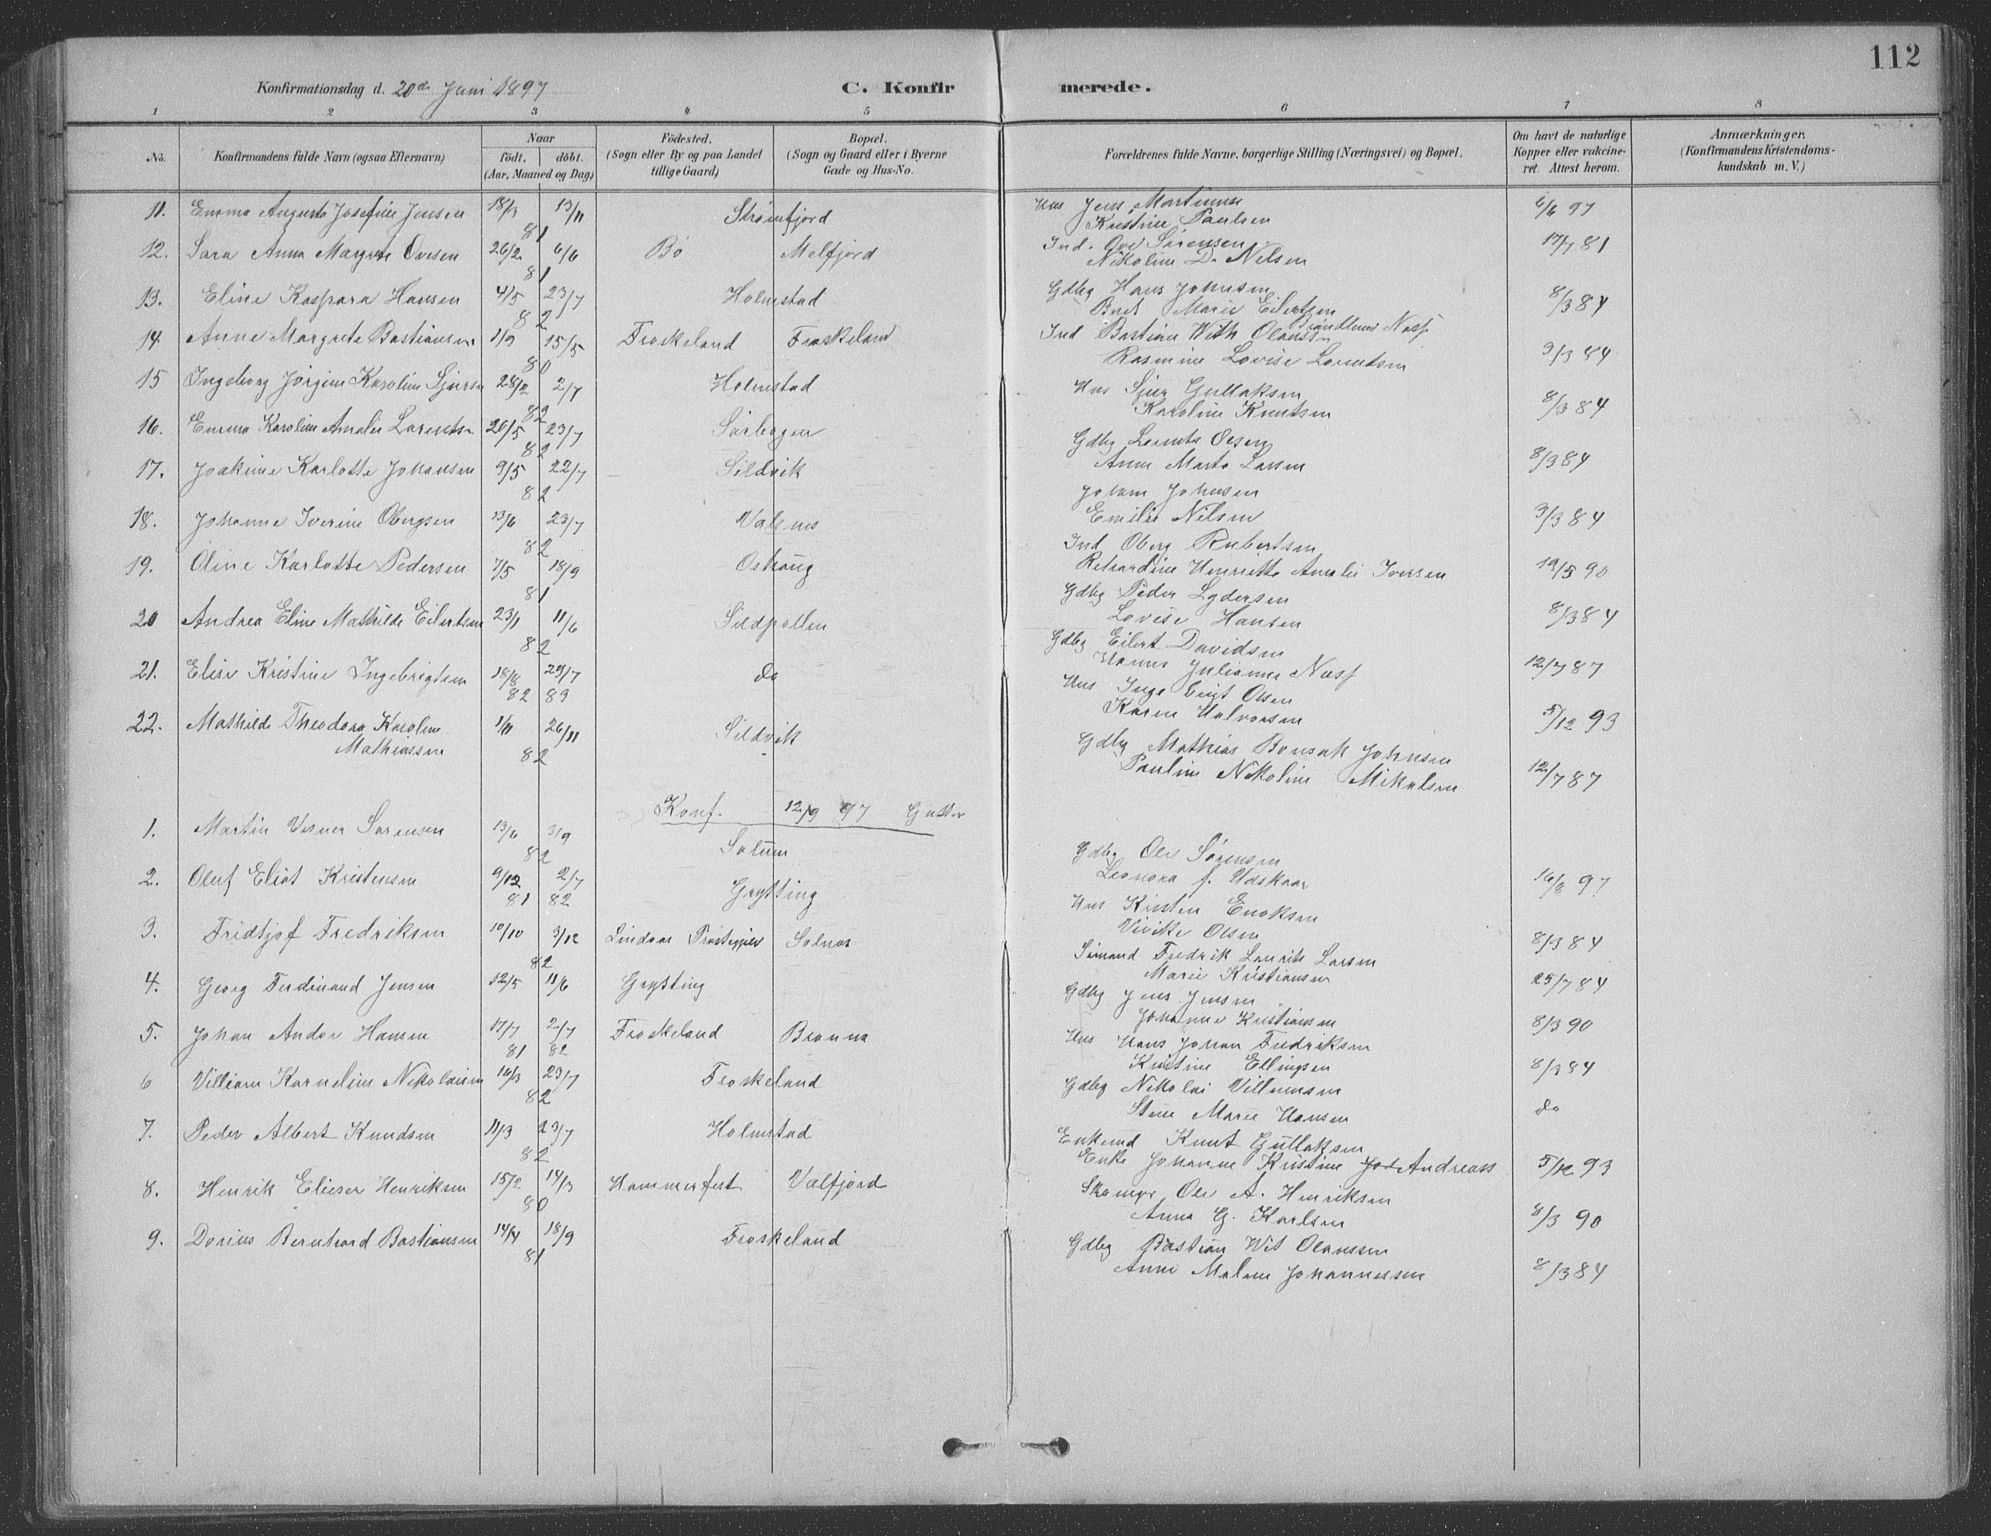 112
Konfirmationsdag d. 20de Juni 1897 C. Konfirmerede.
1 2 3 4 5 6 7 8
No. Konfirmandens fulde Navn (ogsaa Efternavn) Naar födt. döbt. (Aar, Maaned og Dag) Födested. (Sogn eller By og paa Landet tillige Gaard) Bopæl. (Sogn og Gaard eller i Byerne Gade og Hus-No. Forældrenes fulde Navne, borgerlige Stilling (Næringsvei) og Bopæl. Om havt de naturlige Kopper eller vakcineret. Attest herom. Anmærkninger. (Konfirmandens Kristendomskundskab m. V.)
11. Emma Augusta Josefine Jensen 18/3 13/11 81 Strømfjord Hus Jens Martinus 6/6 97
Kristine Paulsen
12. Sara Anna Margrete Ovesen 26/2 6/6 81 Bö Melfjord Ind. Ove Sørensen 17/7 81
Nikoline D. Nilsen
13. Eline Kaspara Hansen 4/5 23/7 82 Holmstad Gdbg Hans Johnsen 8/3 84
Beret Marie Eilertsen
14 Anne Margrete Bastiansen 1/9 15/5 80 Froskeland Froskeland Ind Bastian With Olaussen 3/3 84
Rasmine Lovise Lorentsen
15 Ingeborg Jörgine Karoline Sjursen 28/2 2/7 82 Holmstad Hus Sjur Gullaksen 8/3 84
Karoline Knutsen
16. Emma Karoline Amalie Lorentsen 26/5 23/7 82 Sørbogen Gdbg Lorents Olsen 8/3 84
Anne Marta Larsen
17. Joakime Karlotte Johansen 9/5 22/7 82 Sildvik Johan Johnsen 3/3 84
Emilie Nilsen
18. Johanne Iverine Obergsen 13/6 23/7 82 Valfnes Ind Oberg Rubertsen 19/5 90
Rikardine Henriette Amalie Iversen
19. Oline Karlotte Pedersen 7/5 18/9 81 Oshaug Gdbg Peder Lydersen 8/3 84
Lovise Hansen
20 Andrea Eline Mathilde Eilertsen 23/1 11/6 82 Sildpollen Gdbg Eilert Davidsen 12/7 87
Hanna Julianne Næss
21. Elise Kristine Ingebrigtsen 18/8 29/7 82 83 do Hus Ingebrigt Olsen 5/12 93
Karen Halvorsen
22. Mathilde Theodora Karoline Mathiassen 1/11 26/11 82 Sildvik Gdbg Mathias Bonsak Johnsen 12/7 87
Pauline Nikoline Mikalsen
Konf. 12/9 97 Gutter
1. Martin Verner Sørensen 13/6 3/9 82 Solum Gdbg Ole Sørensen 16/8 97
Leonora J. Udskaar
2. Oluf Eliot Kristensen 9/12 2/7 81 82 Grytting Hus Kristen Enoksen 8/3 84
Vivikke Olsen
3. Fridtjof Fredriksen 10/10 3/12 82 Lindaas Prestegjeld Solnes Sömand Fredrik Laurits Larsen 25/7 84
Marie Kristiansen
4. Georg Ferdinand Jensen 12/5 11/6 Grytting Gdbg Jens Jensen 8/3 90
Johanne Kristiansen
5. Johan Andor Hansen 17/7 2/7 81 82 Froskeland Branna Hus Hans Johan Fredriksen 8/3 84
Kristine Ellingsen
6 Villiam Kornelius Nikolaisen 16/3 23/7 82 Froskeland Gdbg Nikolai Villumsen do
Stine Marie Hansen
7. Peder Albert Knudsen 11/3 23/7 82 Holmstad Enkemd Knut Gullaksen 5/12 93
Enke Johanne Kristine Andreas
8. Henrik Elieser Henriksen 15/2 14/3 80 Hammerfest Valfjord Skomgr Ole A. Henriksen 8/3 90
Anna G. Karlsen
9. Dorius Bernhard Bastiansen 14/4 18/9 81 Froskeland Gdbg Bastian Wit Olaussen 8/3 84
Anne Malene Johannessen